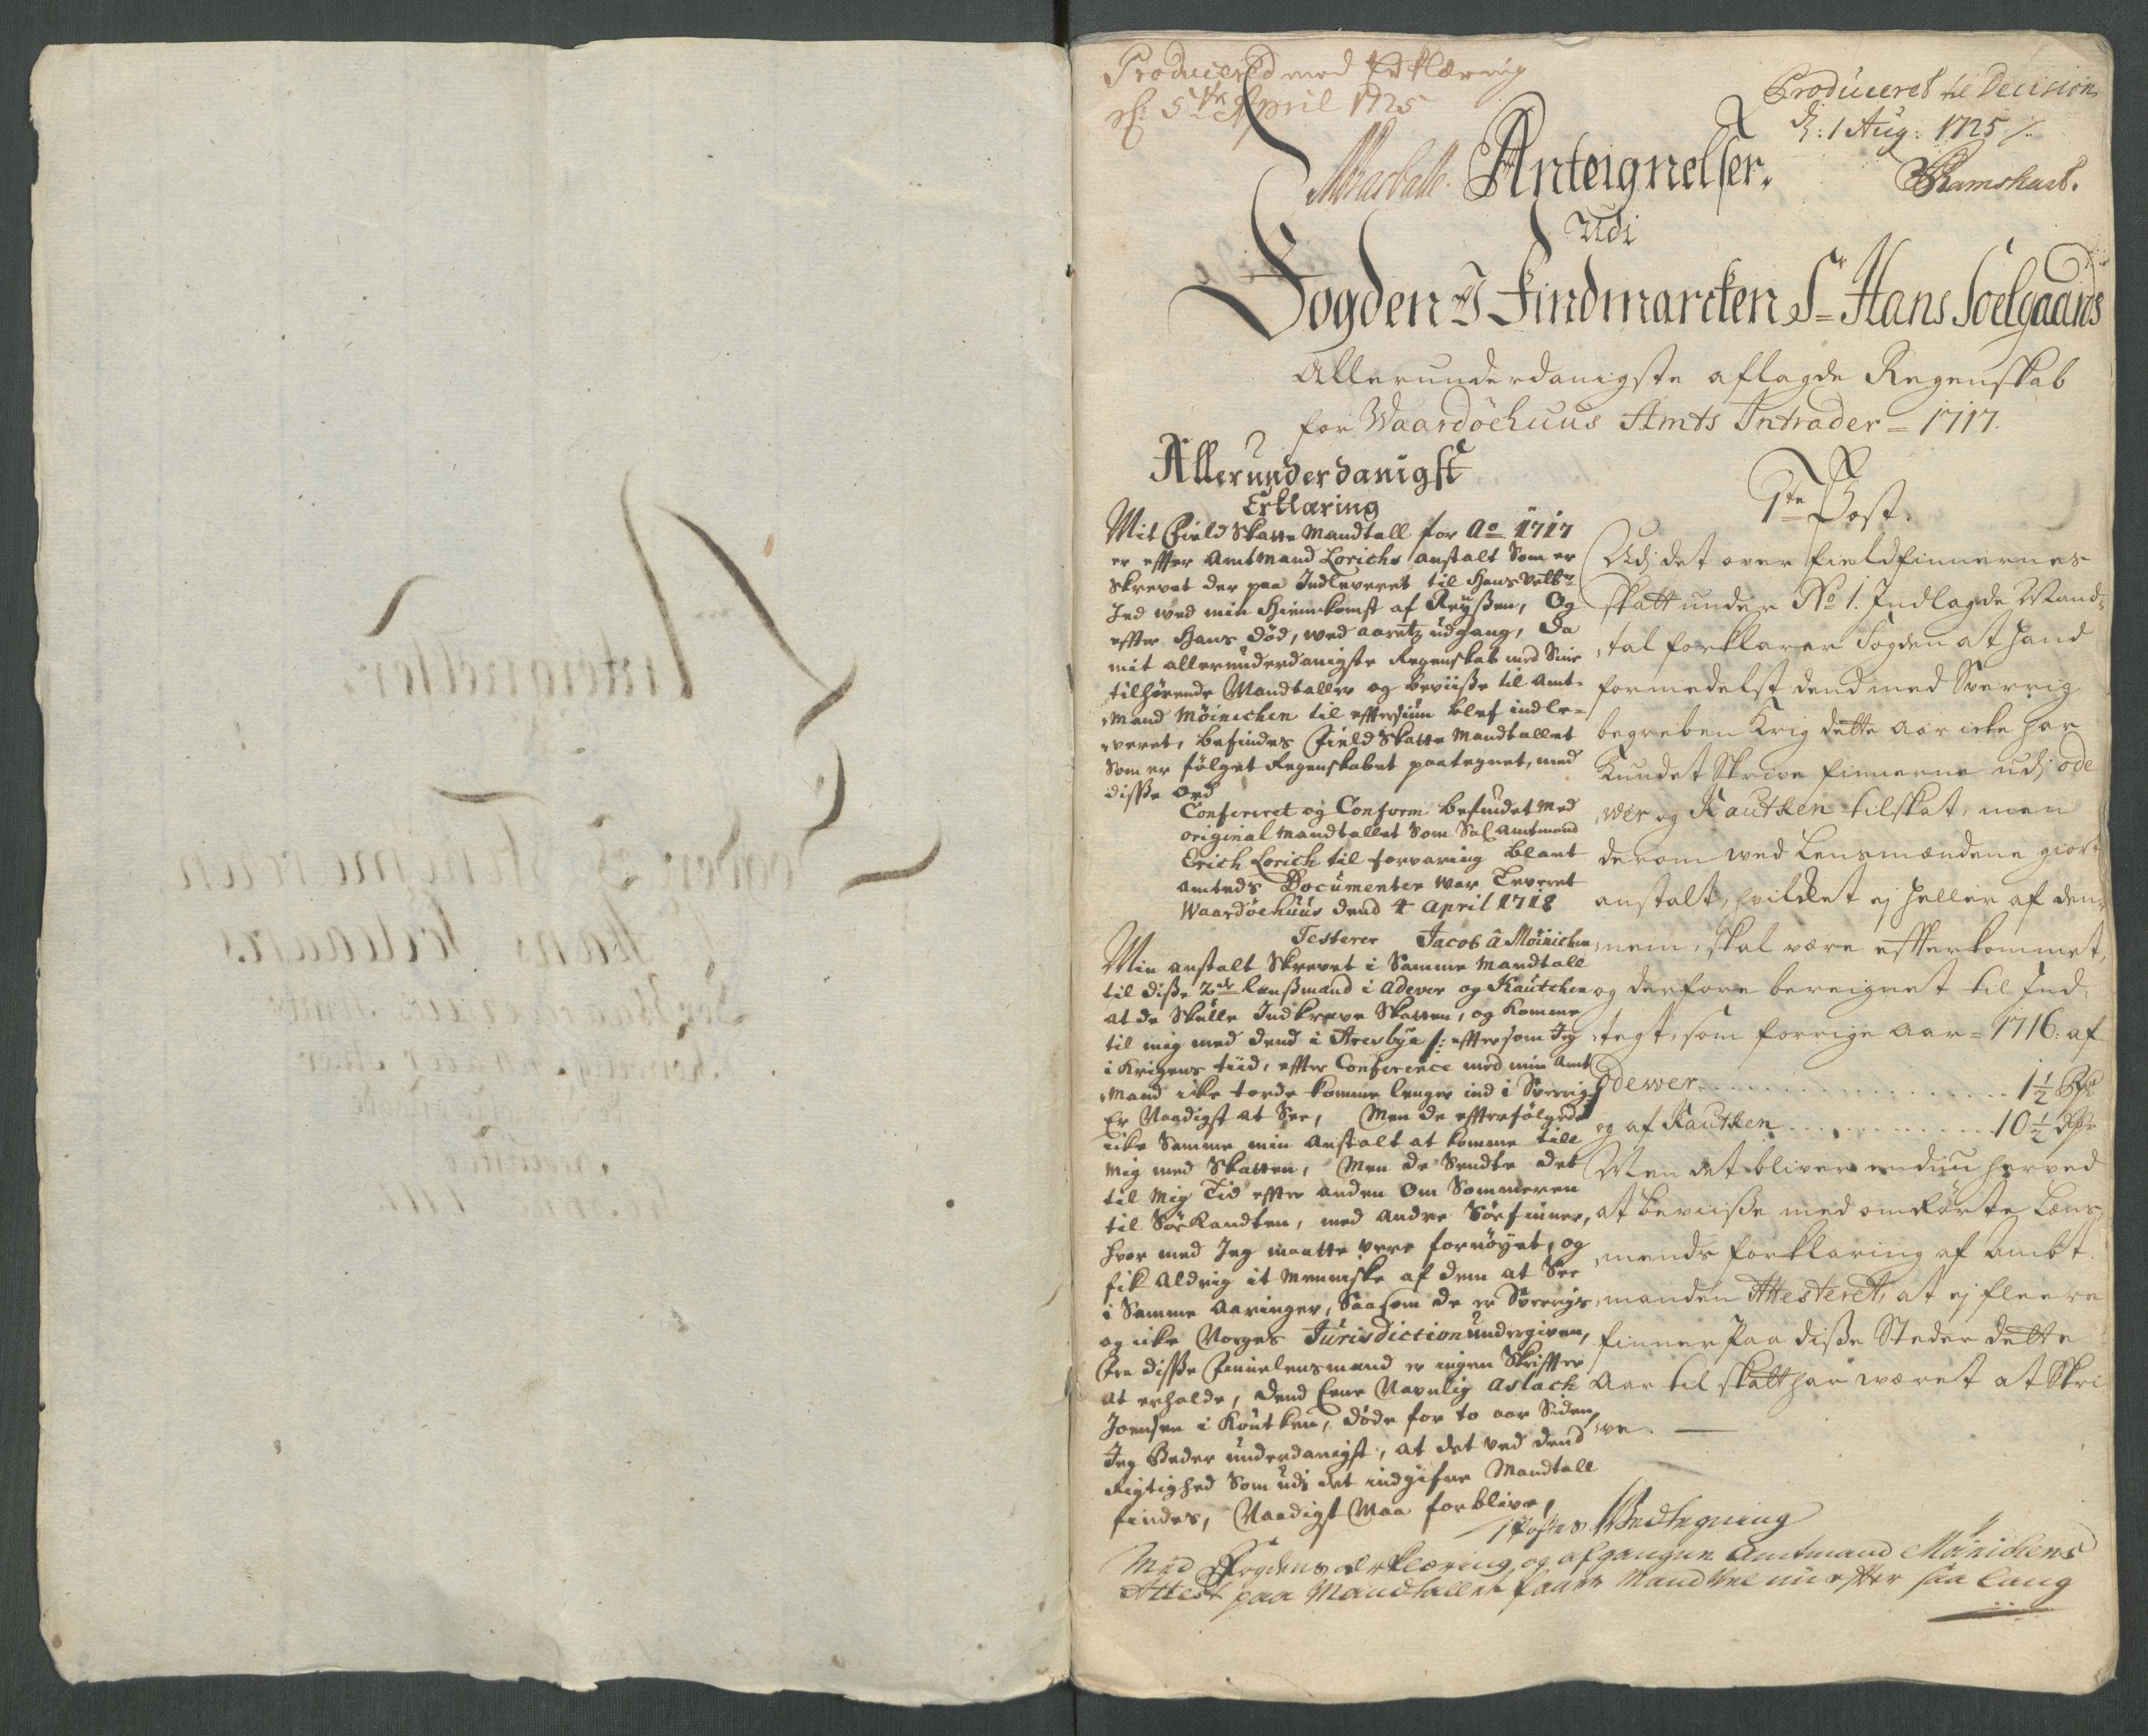 Producered med Erklæring
d: 5te April 1725
Produceret til Decision
d: 1 Aug: 1725 /.
Ramshart.
Anteignelser.
Udi
Fogden J Findmarcken Sr Hans Soelgaards
Allerunderdanigste aflagde Regenskab
for Waardöehuus Amts Intrader = 1717.
Allerunderdanigst
Erklæring
Mit Field Skatte Mandtall for Ao 1717
er efter Amtmand Lorichs anstalt Som er
Skrevet der paa Indleveret til Hans Velbr
Jed ved min Hiemkomst af Reyßen, Og
efter Hans död, wed aaretz udgang, da
mit allerunderdanigste Regenskab med Sine
tilhörende Mandtaller og beviiße til Amt-
mand Möinichen til effersiun blef indle=
veret, befindes Field Skatte Mandtallet
Som er fölget Regenskabet paategnet, med
diße Ord
Confereret og Conform befundet Med
original Mandtallet Som Sal Amtmand
Erich Lorich til forvaring blant
Amteds Documenter War Leveret
Waardöehuus dend 4 April 1718
Testerer Jacob â Möinichen
Min anstalt Skrevet i Samme Mandtall
til diße 2de Lenßmand i Adever og Kautchen
at de Skulle Indkreve Skatten, og komme
til mig med dend i Aresbye /: eftersom Jeg
i Krigens tiid, efter Conference med min Amt
Mand ikke torde komme lenger ind i Sverrig
Er Naadigst at See, Men de efterfölgede
icke Samme min Anstalt at komme till
Mig med Skatten, Men de Sendte det
til Mig Tid efter anden Om Sommeren
til Söe Kandten, med Andre Söefinner,
hvor med Jeg maatte vere fornöyet, og
fik Aldrig it Menniske af dem at See
i Samme Aaringer, Saasom de er Sverrigs
og icke Norges Jurisdiction undergiven,
Fra diße Finnelensmand er ingen Skrifter
at erholde, dend Eene Navnlig Aslach
Joensen i Koutken, döde for to aar Siden,
Jeg Beder underdanigst, at det ved dend
Rigtighed Som udi det indgifne Mandtall
findes, Naadigst Maa forblive,
1te Post.
Udj det over Fieldfinnernes
skatt under No 1. Indlagde Mand=
tal forklarer Fogden at hand
formedelst dend med Sverrig
begreben Krig dette Aar icke har
Kundet Skrive finnerne udj Ode
wer og Kautken til skat, men
derom wed Lensmændene giort
anstalt, hvilket ej heller af den=
nem, skal være efterkommet,
og derfore bereignet til Ind=
tegt, som forrige Aar = 1716. af
Odewer 1 1/2
og af Kautken 10 1/2
Men det bliver endnu herved
at beviiße med omrörte Læns=
mends forklaring af Ambt
manden Attesteret, at ej fleere
finner Paa diße Steder dette
Aar til skatt har wæret at Skri
we.
1 Postes Vedtegning
Med Fogdens Erklæring og afgangne Amtmand Möinichens
Attest paa Mandtallet faaer Mand vel nu efter saa lang